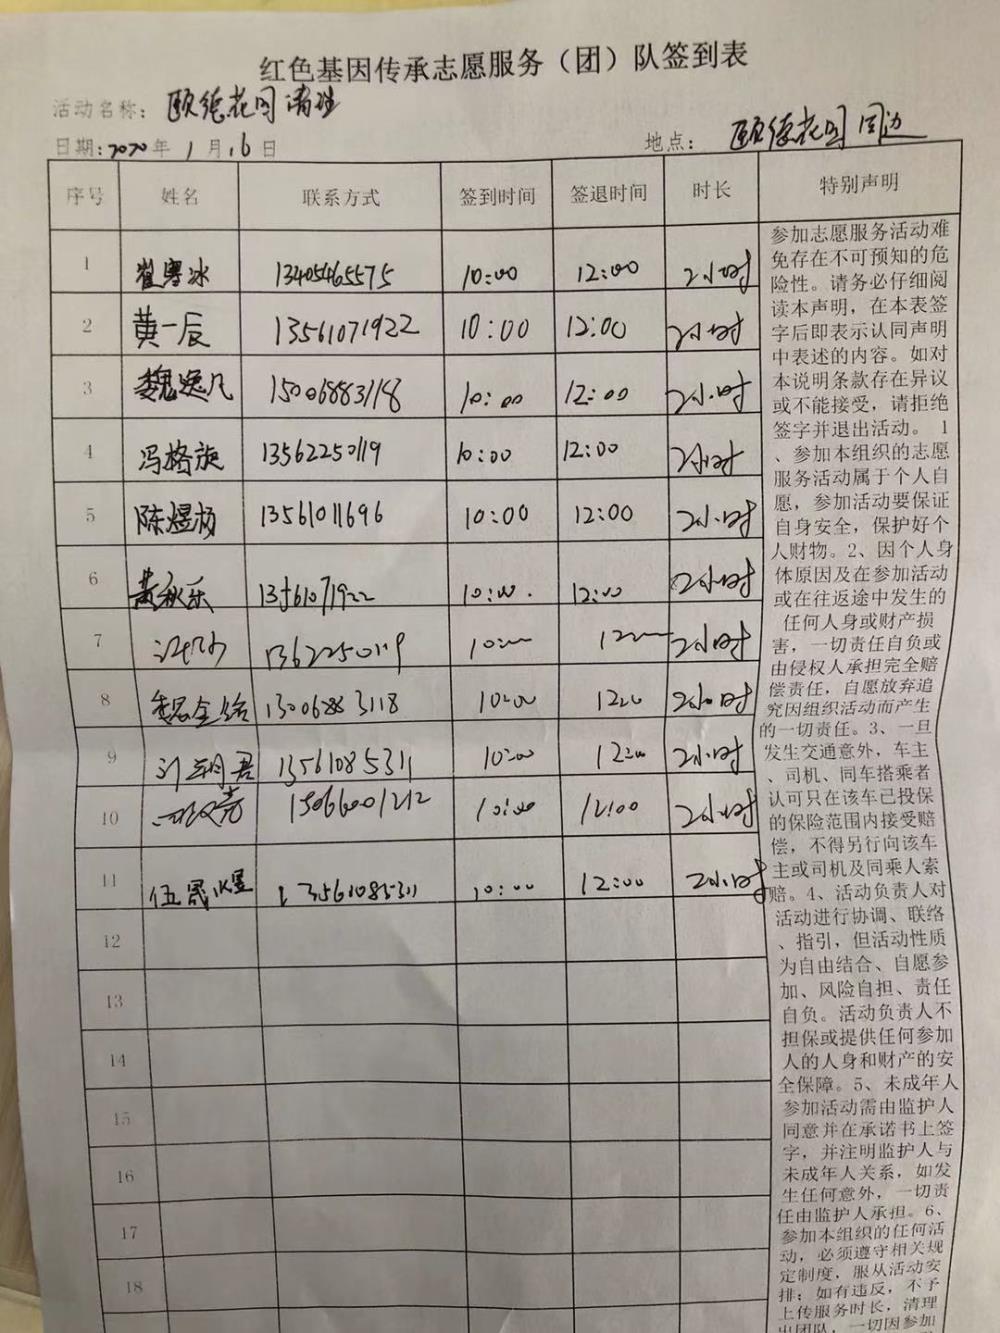 红色基因传承志愿服务（团）队签到表
活动名称: 颐德花园清理
日期:2020年1月16日 地点: 颐德花园周边
序号 姓名 联系方式 签到时间 签退时间 时长 特别声明
1 翟寒冰 13405465575 10:00 12:00 2小时
2 黄一辰 13561071922 10:00 12:00 2小时
3 魏逸凡 15006883118 10:00 12:00 2小时
4 冯格旋 13562250119 10:00 12:00 2小时
5 陈煜杨 13561011696 10:00 12:00 2小时
6 黄秋乐 13561071922 10:00. 12:00 2小时
7 13622250119 10:00 12:00 2小时
8 13006283118 10:00 12:00 2小时
9 13561085311 10:00 12:00 2小时
10 15066001212 10:00 12:00 2小时
11 伍晟煜 13561085311 10:00 12:00 2小时
12
13
14
15
16
17
18
参加志愿服务活动难
免存在不可预知的危
险性。请务必仔细阅
读本声明，在本表签
字后即表示认同声明
中表述的内容。如对
本说明条款存在异议
或不能接受，请拒绝
签字并退出活动。 1
、参加本组织的志愿
服务活动属于个人自
愿，参加活动要保证
自身安全，保护好个
人财物。2、因个人身
体原因及在参加活动
或在往返途中发生的
任何人身或财产损
害，一切责任自负或
由侵权人承担完全赔
偿责任，自愿放弃追
究因组织活动而产生
的一切责任。3、一旦
发生交通意外，车主
、司机、同车搭乘者
认可只在该车已投保
的保险范围内接受赔
偿，不得另行向该车
主或司机及同乘人索
赔。4、活动负责人对
活动进行协调、联络
、指引，但活动性质
为自由结合、自愿参
加、风险自担、责任
自负。活动负责人不
担保或提供任何参加
人的人身和财产的安
全保障。5、未成年人
参加活动需由监护人
同意并在承诺书上签
字，并注明监护人与
未成年人关系，如发
生任何意外，一切责
任由监护人承担。6、
参加本组织的任何活
动，必须遵守相关规
定制度，服从活动安
排；如有违反，不予
上传服务时长，清理
出团队，一切因参加